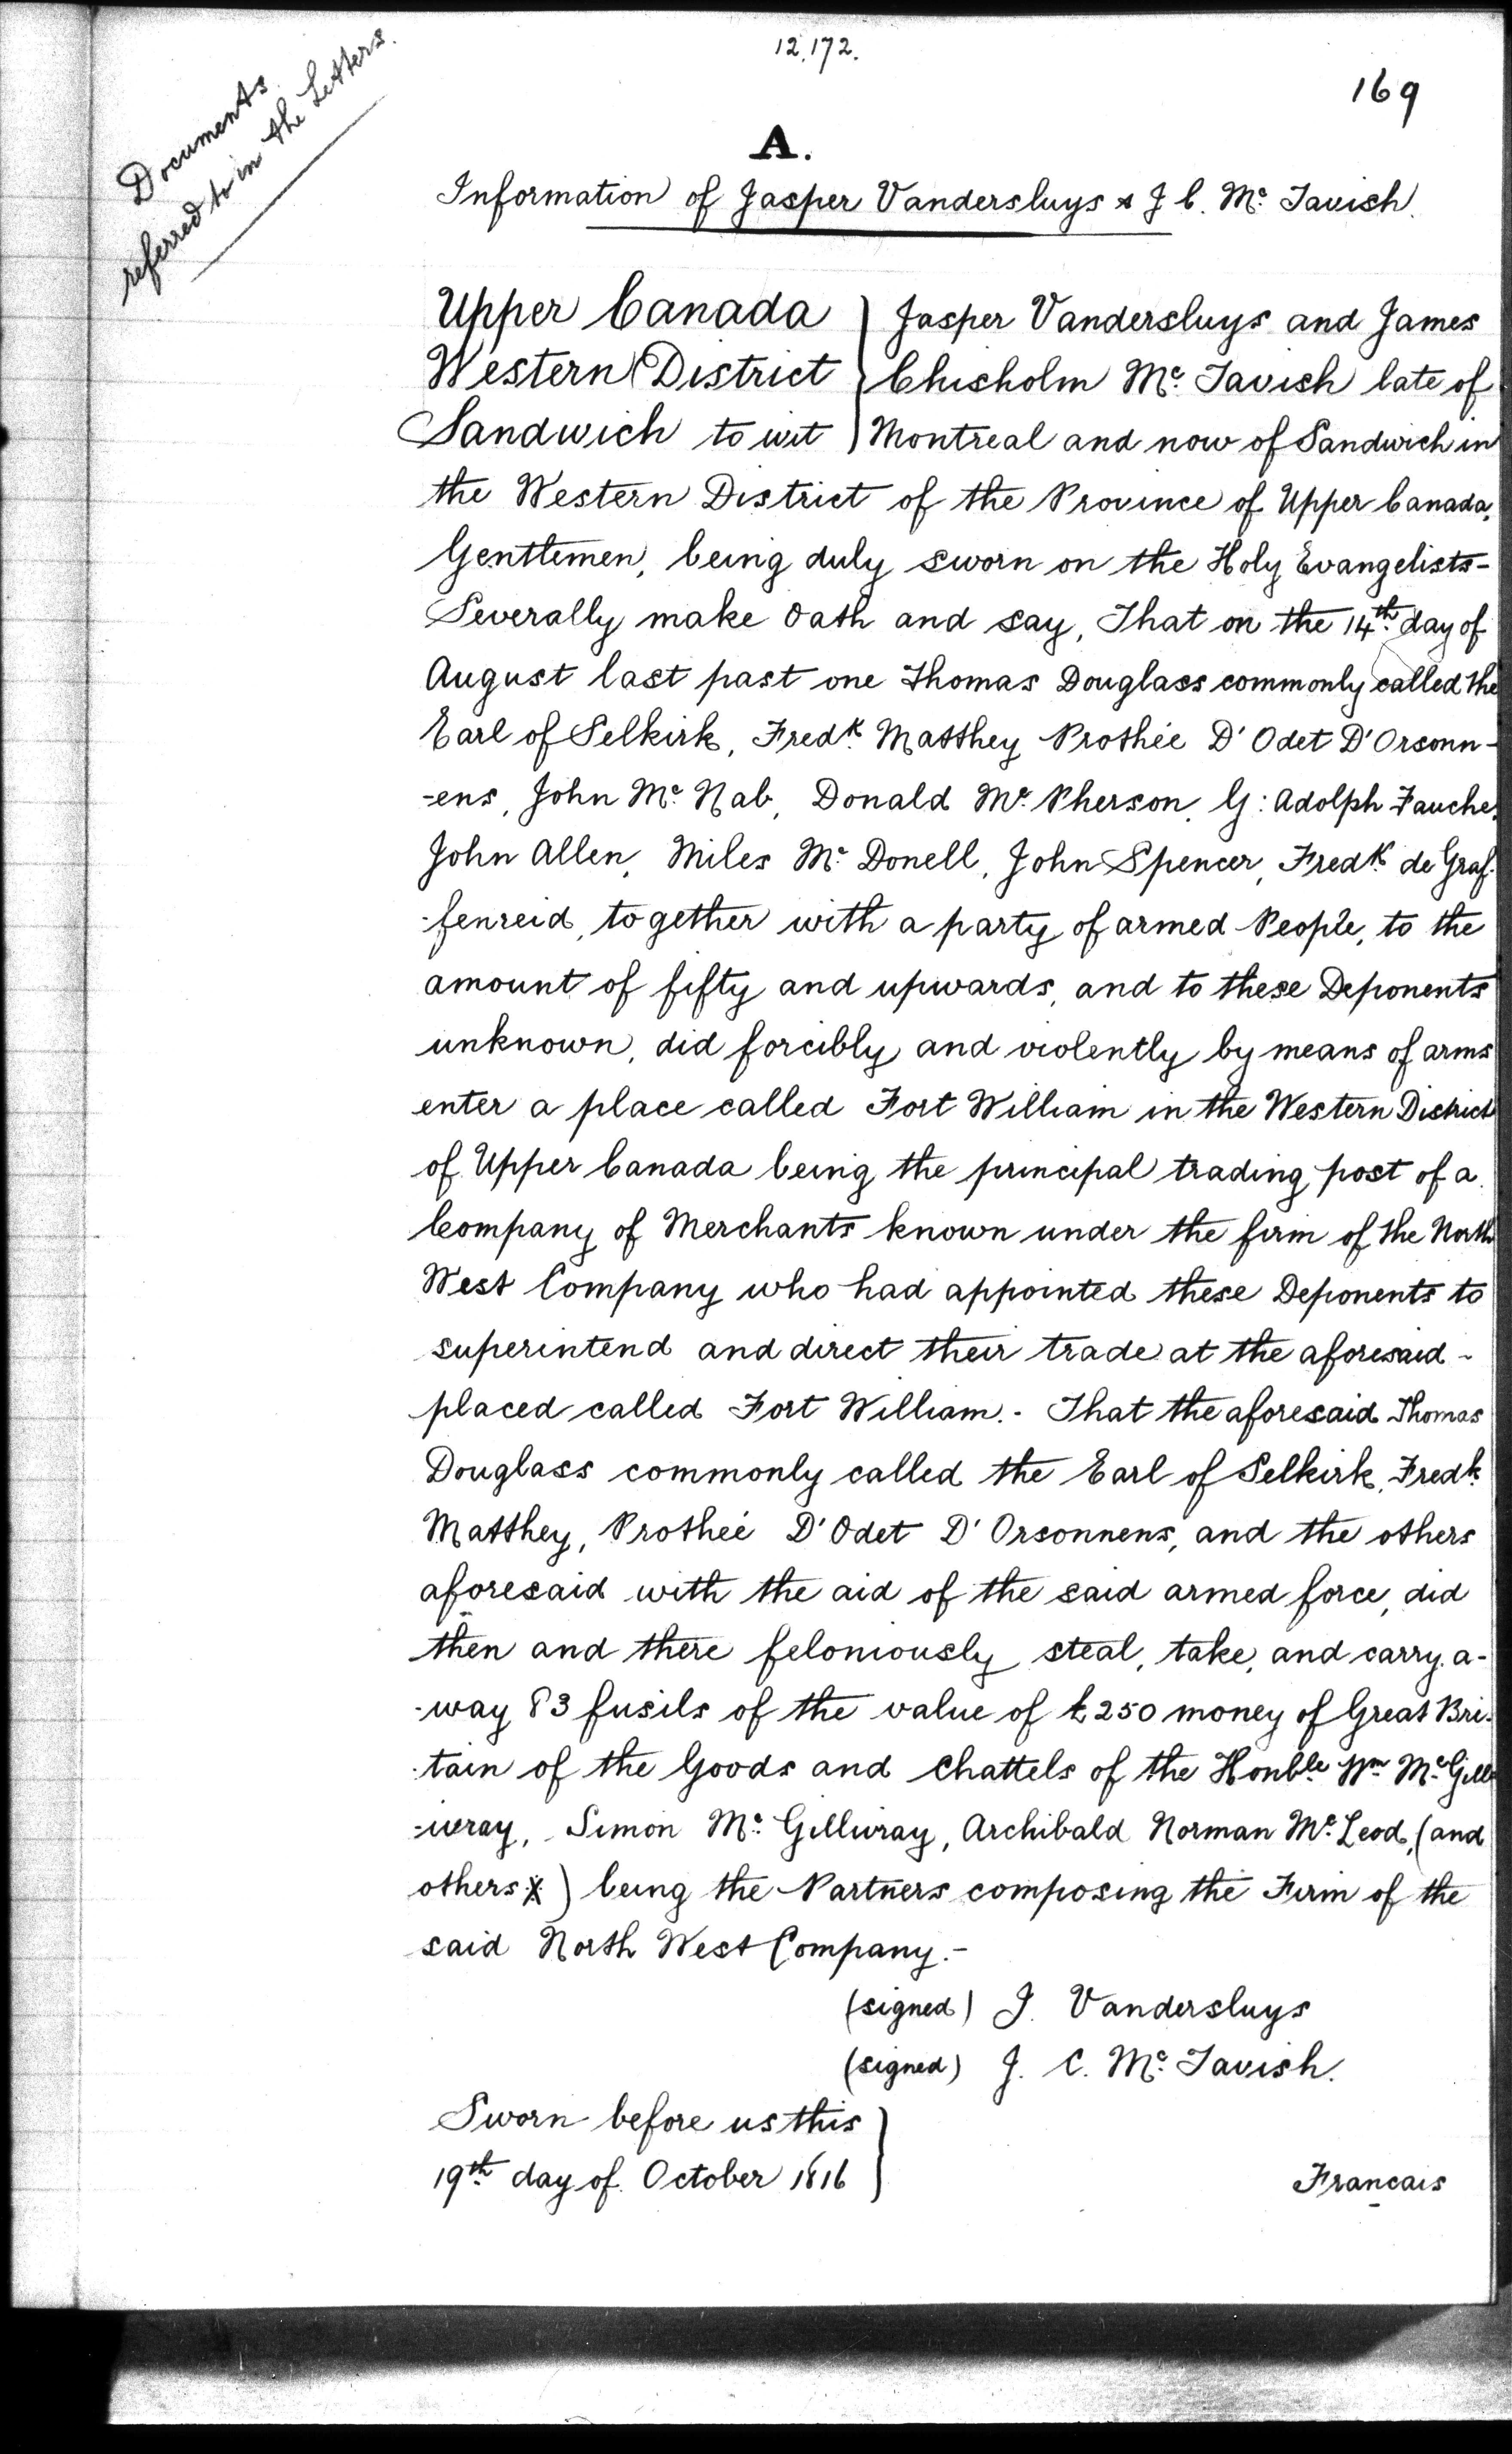 12,172.
169
Documents
referred to in the Letters.
A.
Information of Jasper Vandersluys & J C. Mc. Tavish.
Upper Canada } Jasper Vandersluys and James
Western District } Chisholm Mc. Tavish late of
Sandwich to wit } Montreal and now of Sandwich in
the Western District of the Province of Upper Canada,
Gentlemen, being duly sworn on the Holy Evangelists-
Severally make Oath and say, That on the 14th. day of
August last past one Thomas Douglass commonly called the
Earl of Selkirk, Fredk. Matthey Prothée D'Odet D'Orsonn-
-ens, John Mc. Nab, Donald Mc. Pherson, G: Adolph Fauche,
John Allen, Miles Mc. Donell, John Spencer, Fredk. de Graf-
-fenreid, together with a party of armed People, to the
amount of fifty and upwards, and to these Deponents
unknown, did forcibly and violently by means of arms
enter a place called Fort William in the Western District
of Upper Canada being the principal trading post of a
Company of Merchants known under the firm of the North
West Company who had appointed these Deponents to
superintend and direct their trade at the aforesaid -
placed called Fort William. - That the aforesaid Thomas
Douglass commonly called the Earl of Selkirk, Fredk.
Matthey, Protheé D'Odet D'Orsonnens, and the others
aforesaid with the aid of the said armed force, did
then and there feloniously steal, take, and carry a-
-way 83 fusils of the value of £250 money of Great Bri-
-tain of the Goods and Chattels of the Honble. Wm. Mc. Gill-
-ivray, Simon Mc. Gillivray, Archibald Norman Mc. Leod, (and
others X) being the Partners composing the Firm of the
said North West Company.-
(signed) J. Vandersluys
(signed) J. C. Mc. Tavish.
Sworn before us this }
19th. day of October 1816 }
Francais